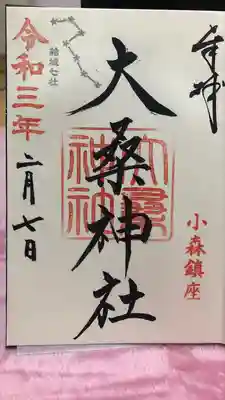 奉拝
小森鎮座
大桑神社
大桑神社
結城七社
令和三年
六月七日